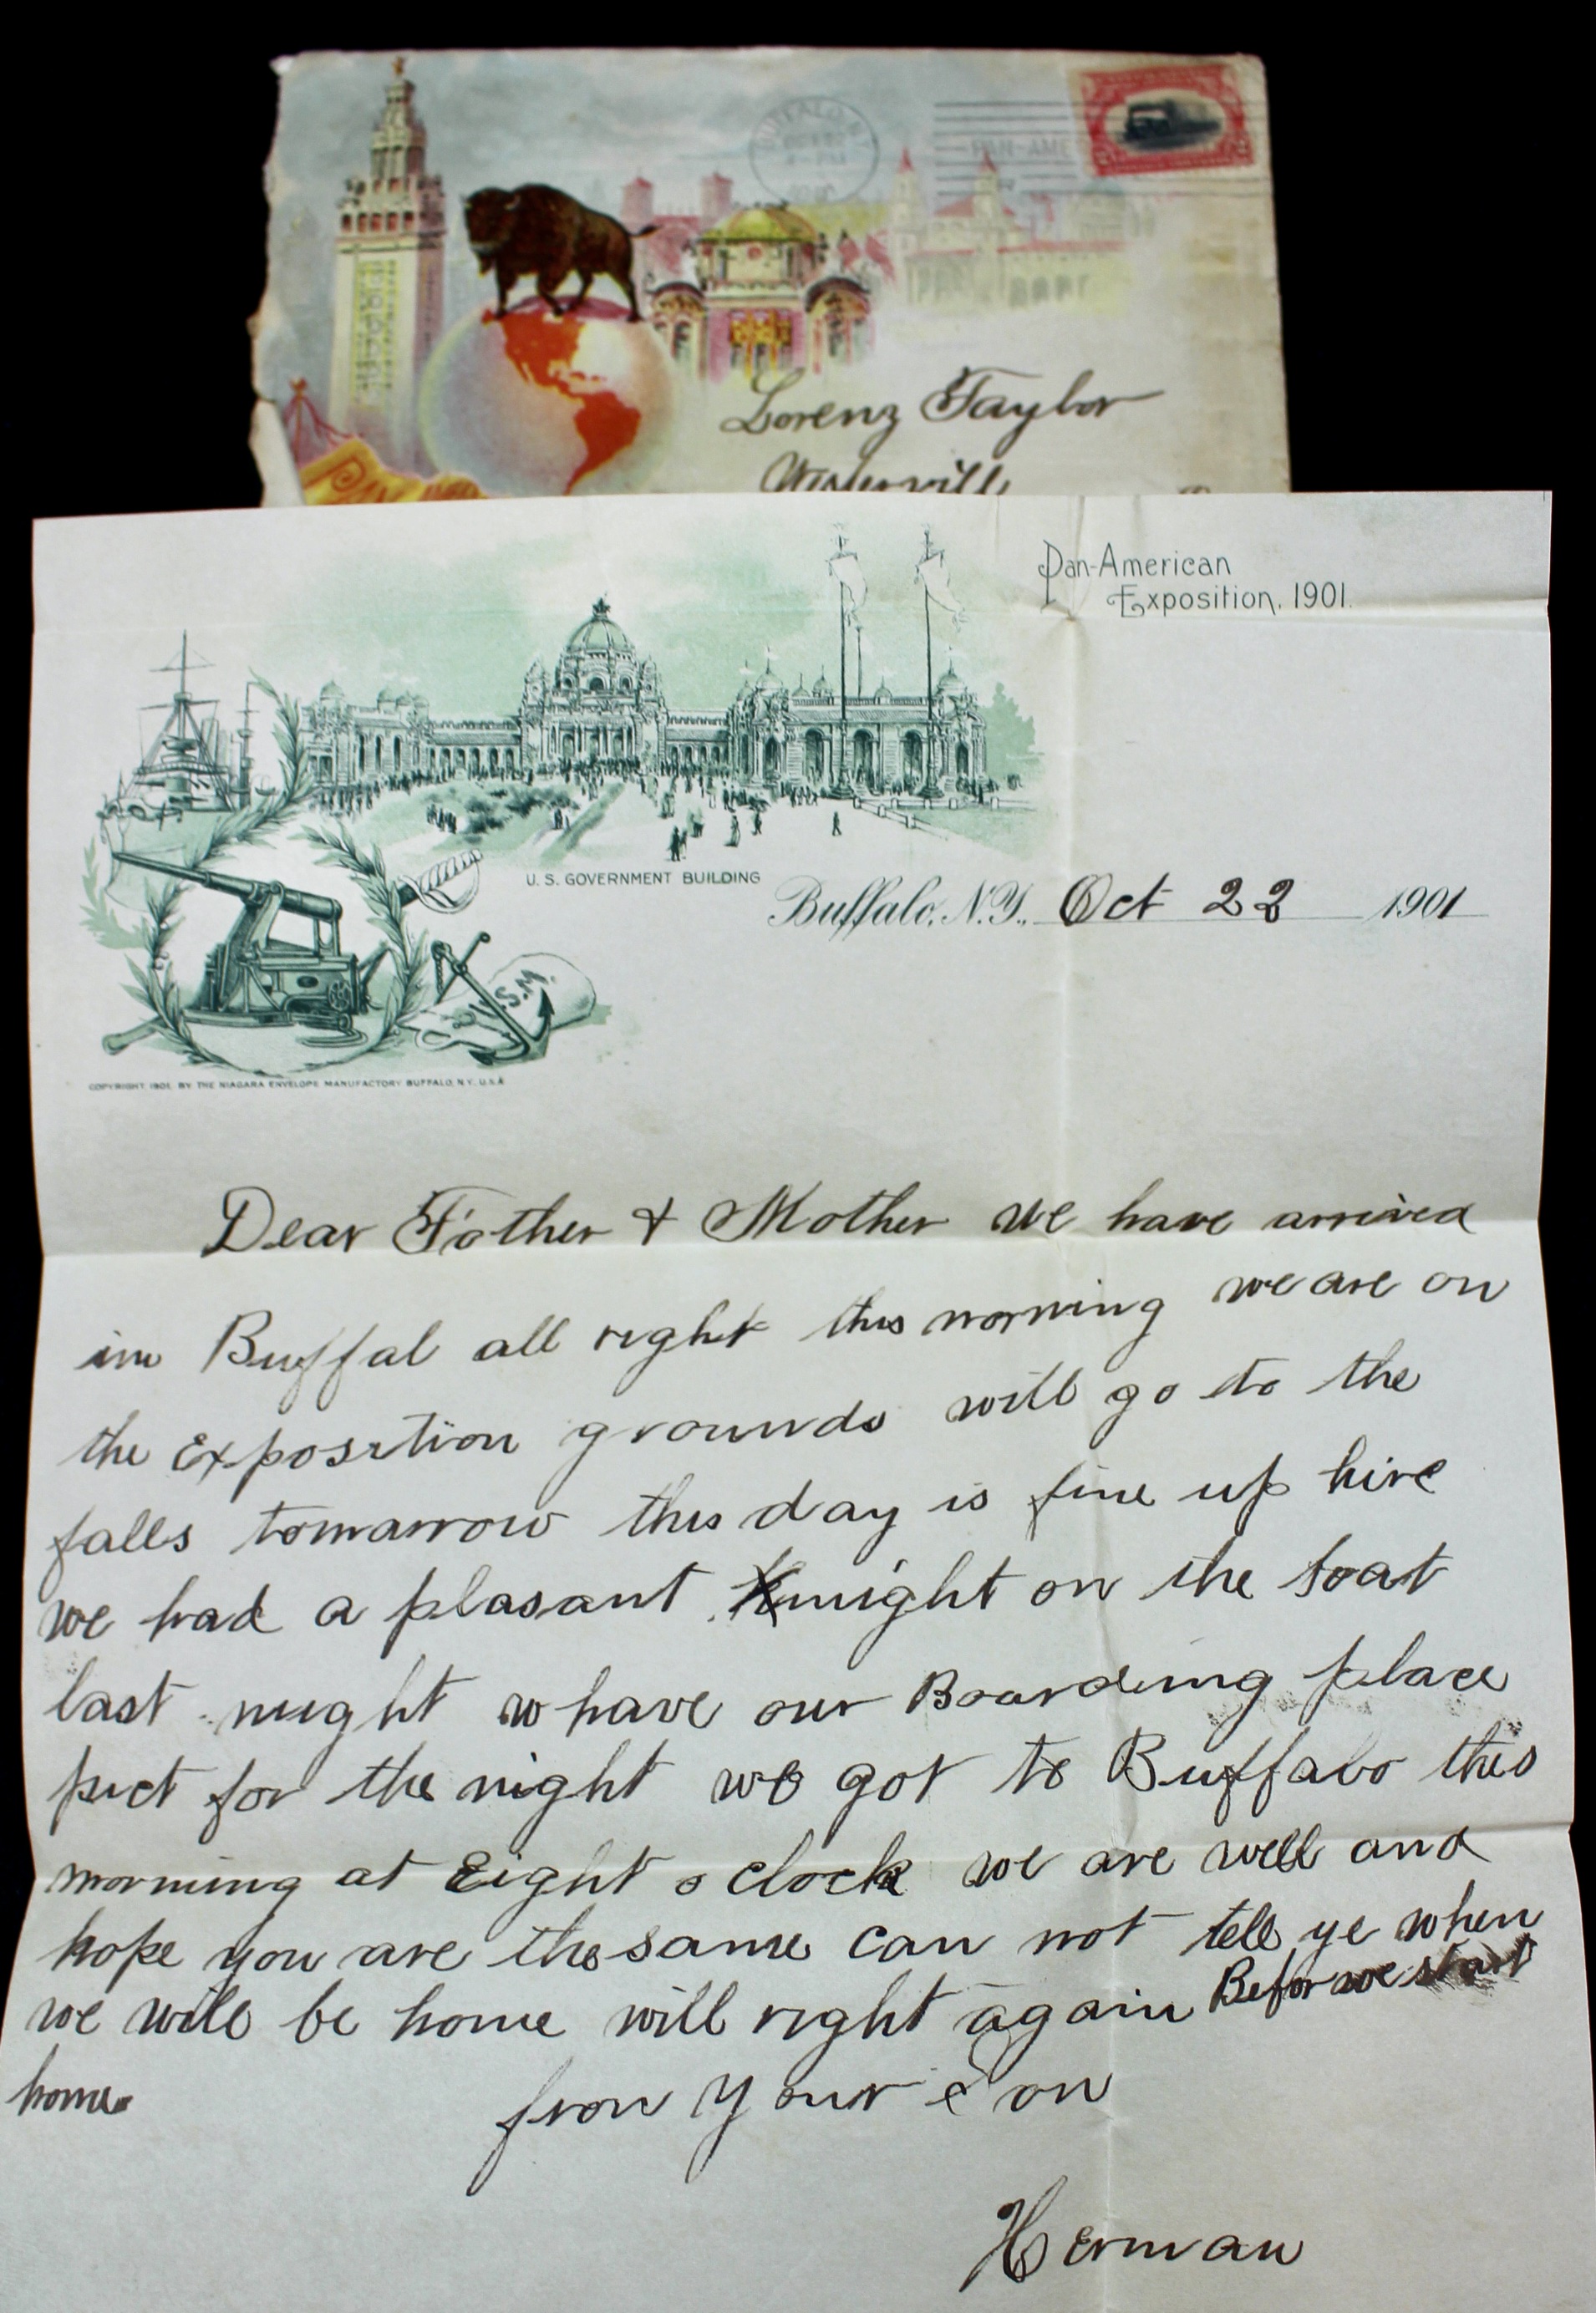 BUFFALO, N.Y.
PM
PAN-AME
PAN
Lorenz Taylor
Pan-American
Exposition, 1901.
U. S. GOVERNMENT BUILDING
Buffalo, N.Y., Oct 22 1901
U.S.M.
COPYRIGHT, 1901, BY THE NIAGARA ENVELOPE MANUFACTORY BUFFALO, N.Y., U.S.A.
Dear Father & Mother we have arrived
in Buffal all right this morning we are on
the Exposition grounds will go to the
falls tomarrow this day is fine up hire
we had a plasant night on the boat
last night w have our Boarding place
pict for the night we got to Buffalo this
morning at Eight o clock we are well and
hope you are the same can not tell ye when
we will be home will right again Befor we start
home
fron your son
Herman